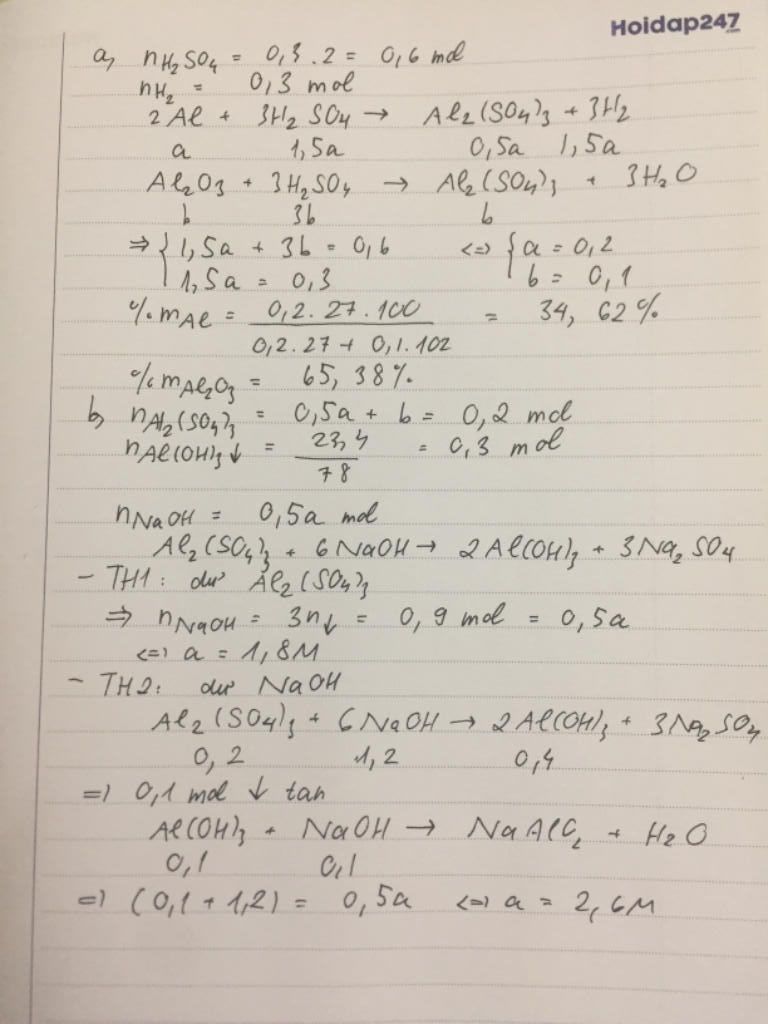 Hoidap247
.com
a, nH2SO4 = 0,3 . 2 = 0,6 mol
nH2 = 0,3 mol
2Al + 3H2SO4 → Al2(SO4)3 + 3H2
a 1,5a 0,5a 1,5a
Al2O3 + 3H2SO4 → Al2(SO4)3 + 3H2O
b 3b b
⇒ { 1,5a + 3b = 0,6 <=> { a = 0,2
1,5a = 0,3 b = 0,1
%mAl = 0,2.27.100 = 34,62%
0,2.27 + 0,1.102
%mAl2O3 = 65,38%
b, nAl2(SO4)3 = 0,5a + b = 0,2 mol
nAl(OH)3↓ = 23,4 = 0,3 mol
78
nNaOH = 0,5a mol
Al2(SO4)3 + 6NaOH → 2Al(OH)3 + 3Na2SO4
- TH1: dư Al2(SO4)3
⇒ nNaOH = 3n↓ = 0,9 mol = 0,5a
<=> a = 1,8M
- TH2: dư NaOH
Al2(SO4)3 + 6NaOH → 2Al(OH)3 + 3Na2SO4
0,2 1,2 0,4
=> 0,1 mol ↓ tan
Al(OH)3 + NaOH → NaAlO2 + H2O
0,1 0,1
=> (0,1 + 1,2) = 0,5a <=> a = 2,6M